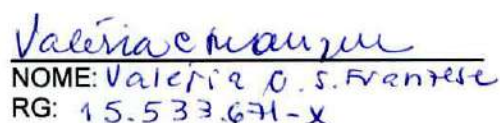 Valéria
NOME: Valéria O. S. Franzese
RG: 15.533.671-X